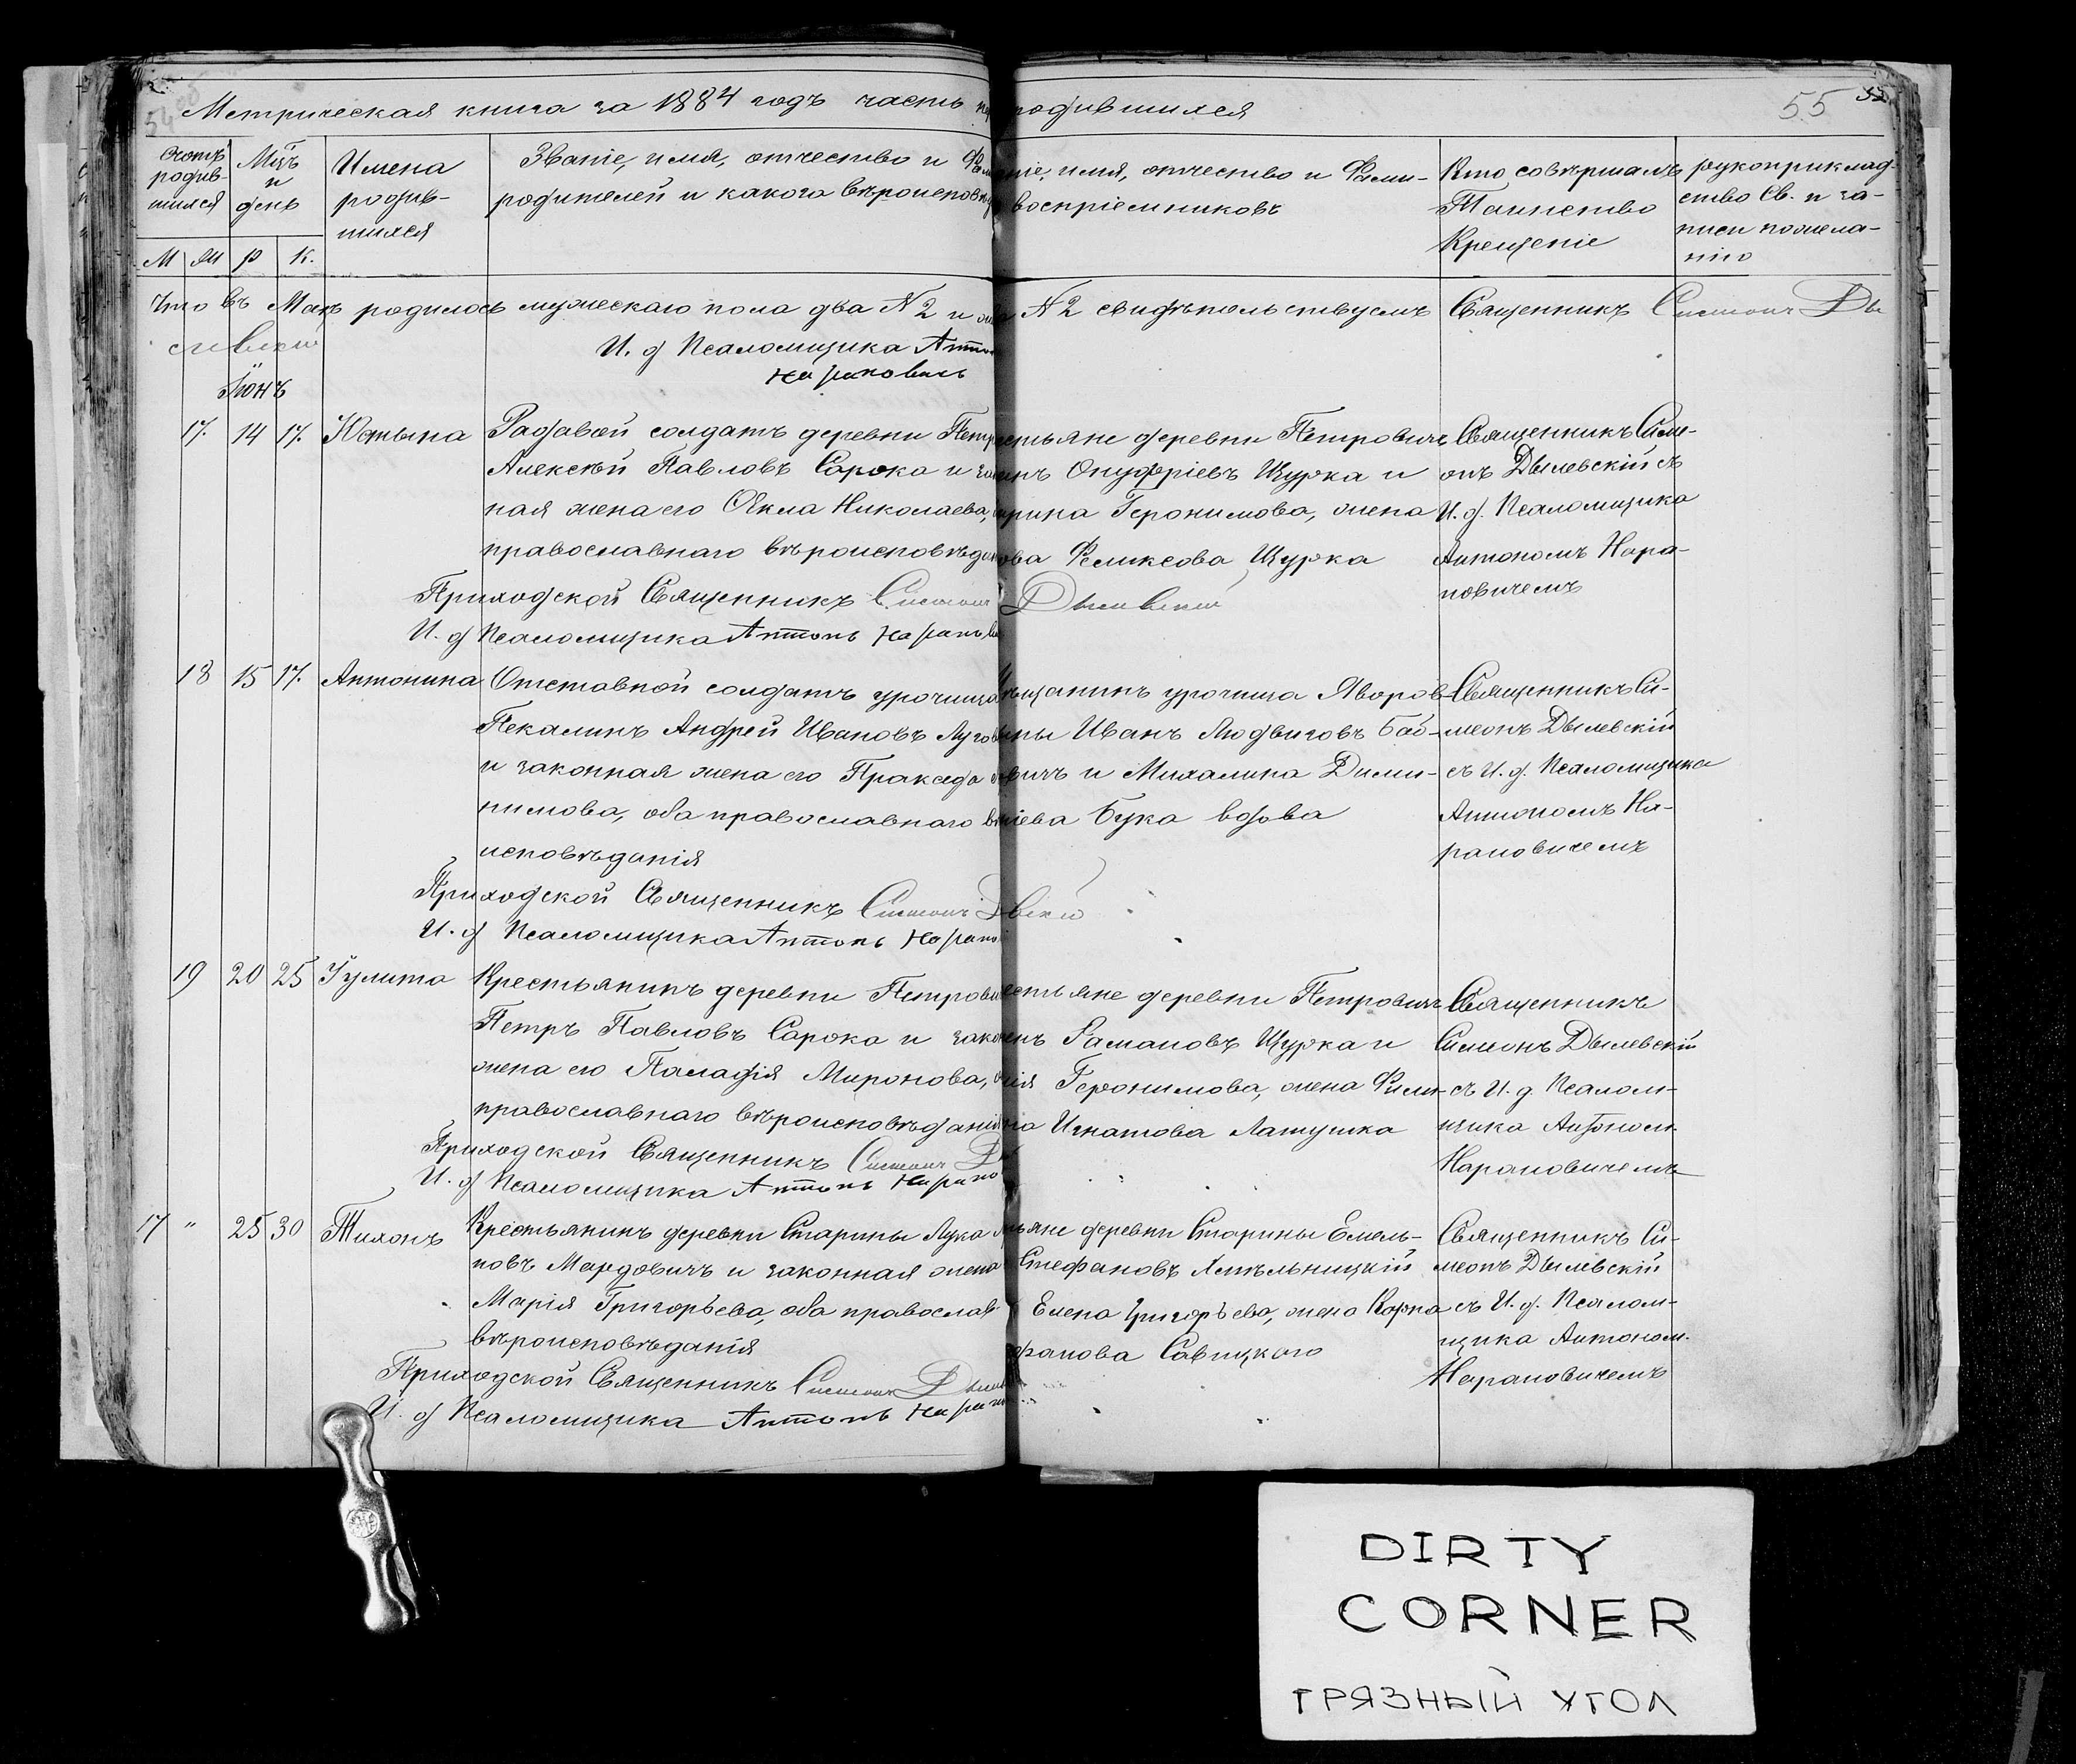 Метрическая книга за 1884 годъ часть
родившихся
55
Счетъ родив-шихся
Мцъ и день
Имена родив-шихся
Званіе, имя, отчество и Фами
родителей и какого вѣроисповѣд
имя, отчество и Фами-
воспріемниковъ
Кто совѣршалъ
Таинство
Крещеніе
рукоприклад-
ство Св. и за-
писи по жела-
нію
М Ж Р К.
Что въ Маѣ родилось мужескаго пола два № 2 и № 2 свидѣтельствуемъ Священникъ Симеонъ Ды
левскій
И. д Псаломщика Антонъ
Нарановичъ
Іюнь
17. 14 17. Юстына
Радавой солдатъ деревни Петр
Алексѣй Павловъ Сарока и за
ная жена его Ѳекла Николаева,
православнаго вѣроисповѣдан
естьяне деревни Петрович
Онуфріевъ Щурка и
рина Геронимова, жена
ова Феликсова Щурка
Священникъ Симе-
онъ Дылевскій съ
И. д. Псаломщика
Антономъ Нара-
новичемъ
Приходской Священникъ Симеонъ Дылевскій
И. д Псаломщика Антонъ Нарановичъ
18 15 17. Антонина
Отставной солдатъ урочища
Пекалинъ Андрей Ивановъ Луго
и законная жена его Пракседа
нимова, оба православнаго вѣ
исповѣданія
ѣщанинъ урочища Яворов-
ины Иванъ Людвиговъ Бой-
вичъ и Михалина Дими-
ріева Бука вдова
Священникъ Си-
меонъ Дылевскій
съ И. д. Псаломщика
Антономъ На-
рановичемъ
Приходской Священникъ Симеонъ Д вскій
И. д Псаломщика Антонъ Нарано
19 20 25 Іулита
Крестьянинъ деревни Петрови
Петръ Павловъ Сарока и зако
жена его Паладія Миронова,
православнаго вѣроисповѣданія
естьяне деревни Петрович
Рамановъ Щурка и
Геронимова, жена Фили-
на Игнатова Латушка
Священникъ
Симеонъ Дылевскій
съ И. д. Псалом-
щика Антоном
Нарановичемъ
Приходской Священникъ Симеонъ Ды
И. д Псаломщика Антонъ Нарано
17 " 25 30 Тихонъ
Крестьянинъ деревни Старины Лука
новъ Мардовичъ и законная жена
Марія Григорьева, оба православ
вѣроисповѣданія
ьяне деревни Старины Емель-
Стефановъ Хмѣльницкій
Елена Григорьева, жена Карпа
фанова Савицкаго
Священникъ Си-
меонъ Дылевскій
съ И. д. Псалом-
щика Антоном-
Нарановичемъ
Приходской Священникъ Симеонъ Дылев
И. д Псаломщика Антонъ Нарано
DIRTY
CORNER
ГРЯЗНЫЙ УГОЛ